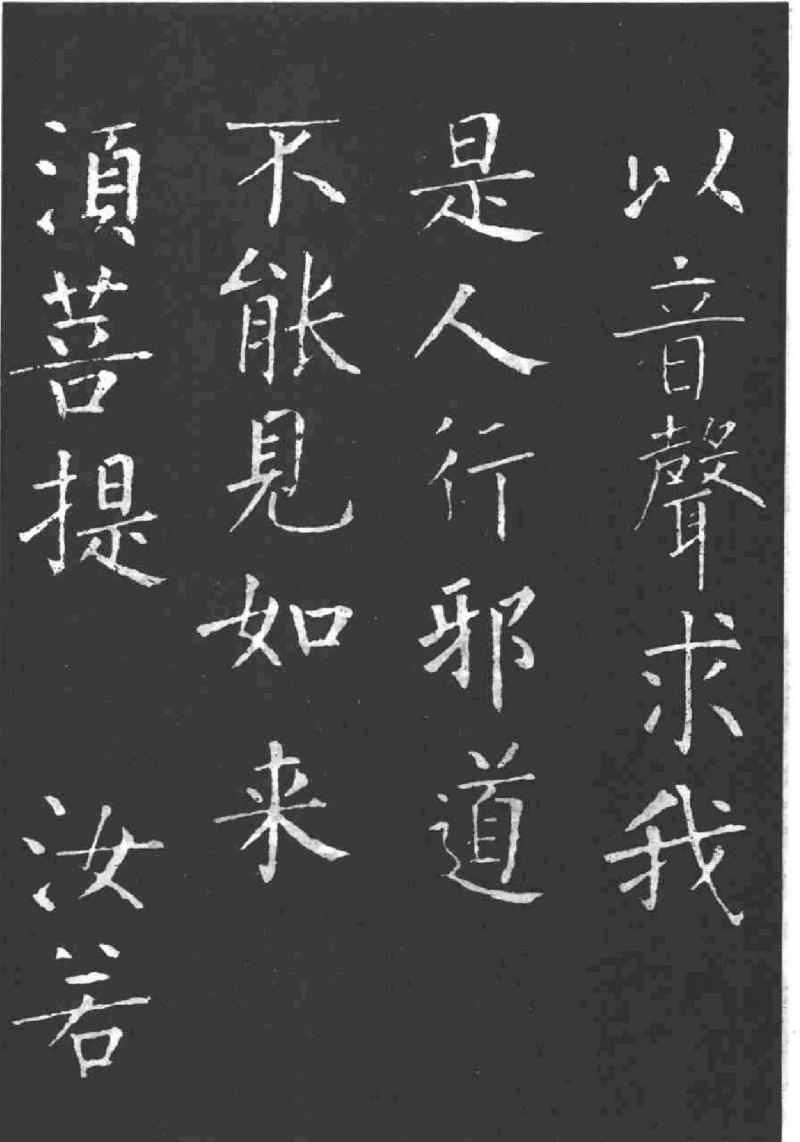 以音聲求我
是人行邪道
不能見如来
湏菩提 汝若